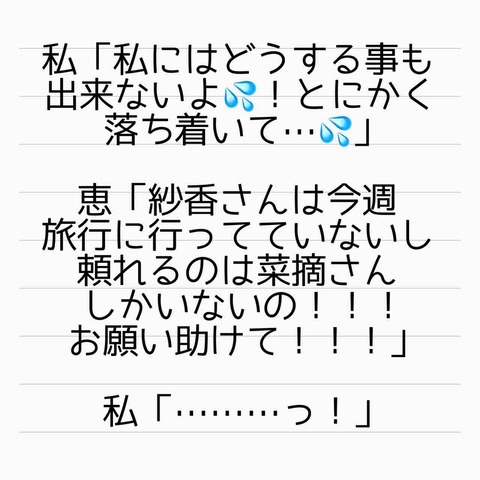 私「私にはどうする事も
出来ないよ💦！とにかく
落ち着いて…💦」
恵「紗香さんは今週
旅行に行ってていないし
頼れるのは菜摘さん
しかいないの！！！
お願い助けて！！！」
私「………っ！」